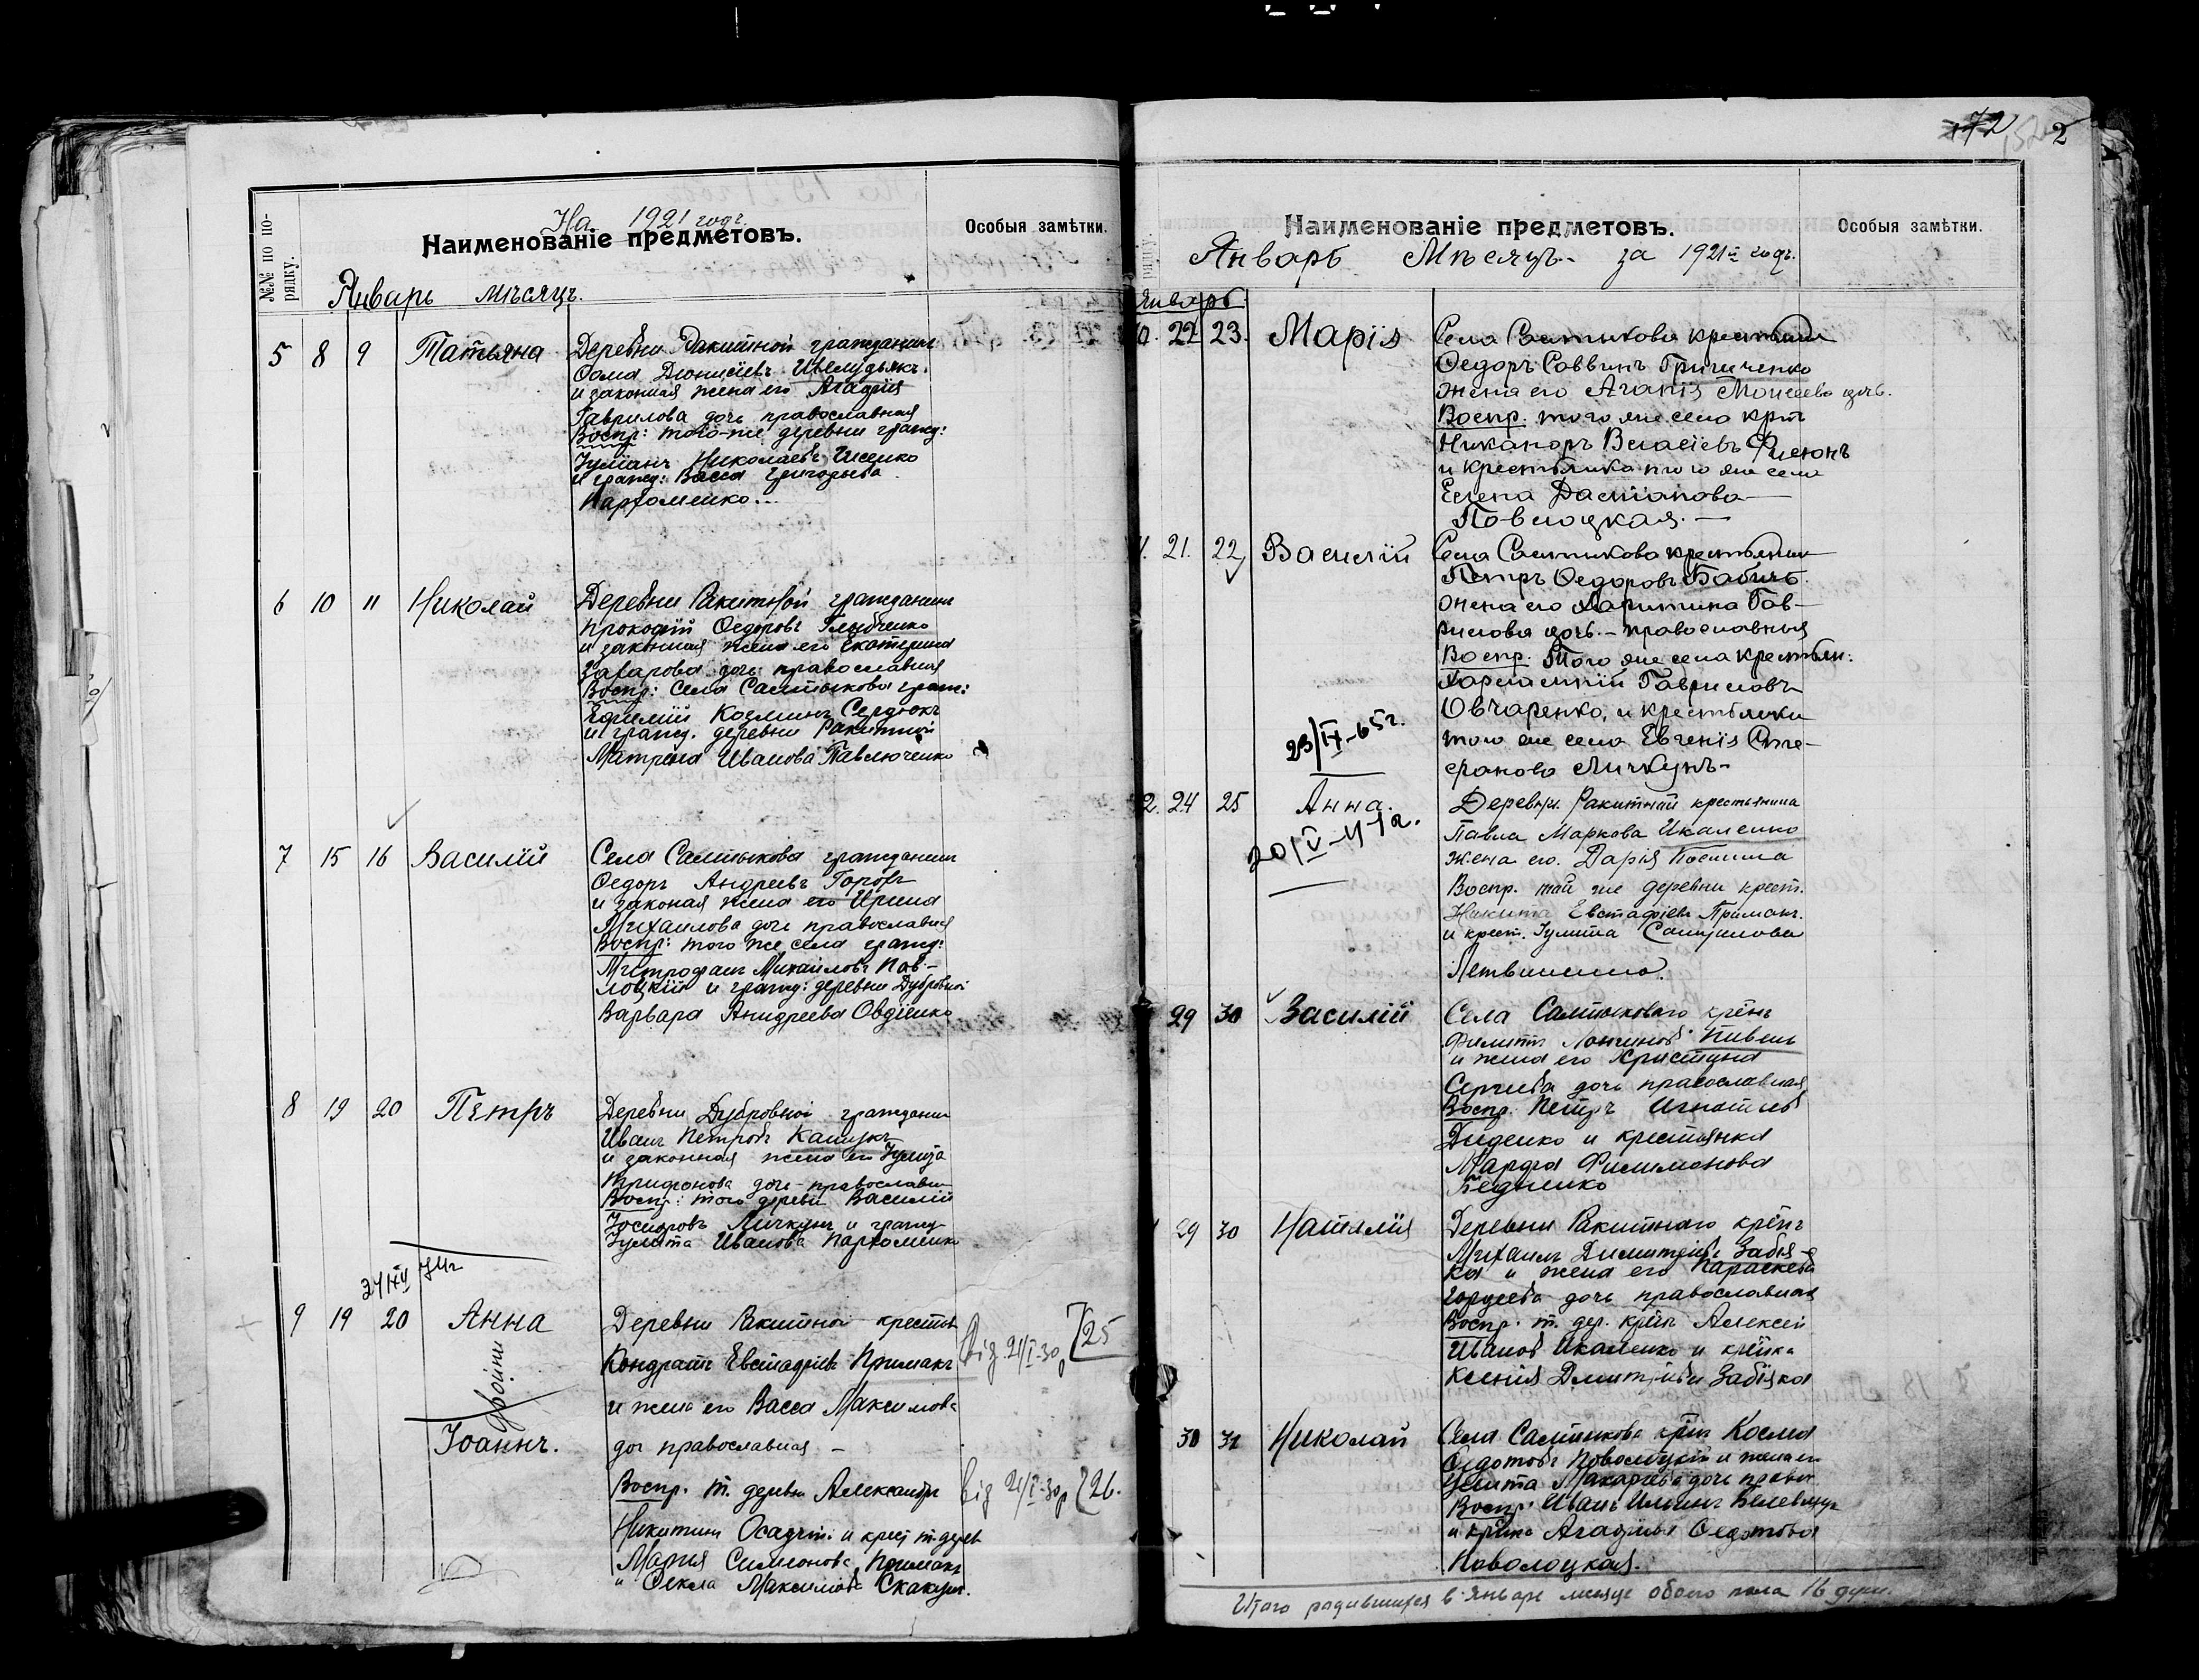 На 1921 годъ.
№№ по порядку.
Наименованіе предметовъ.
Особыя замѣтки.
Январь мѣсяцъ.
5 8 9 Татьяна
Деревни Ракитной гражданинъ
Ѳома Діонисіевъ
и законная жена его Агафія
Гаврилова дочь православная
Воспр: того-же деревни гражд:
Іуліанъ Николаевъ
и гражд: Васса Григорьева
Пархоменко...
6 10 11 Николай
Деревни Ракитной гражданинъ
Прокофій Ѳедоровъ
и законная жена его Екатерина
Захарова дочь православная
Воспр: Села Салтыкова граж:
Ефимій Козминъ Сердюкъ
и гражд. деревни Ракитной
Матрена Иванова Павлюченко
7 15 16 Василій
Села Салтыкова гражданинъ
Ѳедоръ Андреевъ
и законая жена его Ирина
Михаилова дочь православная
Воспр: того же села гражд:
Митрофанъ Михаиловъ Пов-
лоцкій и гражд: деревни Дубровной
Варвара Андреева Овдіенко
8 19 20 Петръ
Деревни Дубровной гражданин
Иванъ Петровъ
и законная жена его Іулита
Трифонова дочь православн
Воспр: того деревни Василій
Іосифовъ Личкунъ и гражд
Іулита Иванова Пархоменко
9 19 20 Анна
двойни
Іоаннъ.
Деревни Ракитной крестьн
Кондратъ Евстафіевъ Примакъ
и жена его Васса Максимова
доч православная –
Воспр. т. деревни Александръ
Никитинъ и крест т. дерев
Марія Симеонова Примакъ
и Ѳекла Максимова Скакунъ.
від 21/I-30р 25
від 21/I-30р 26.
72 2
Наименованіе предметовъ.
Особыя замѣтки.
Январь Мѣсяцъ за 1921й годъ.
Январь
22 23. Марія
Села Салтыкова крестьянин
Ѳедоръ Саввинъ Гриценко
жена его Агапія Моисеева дочь.
Воспр. того же села крт
Никаноръ Власіевъ
и крестьянка того же села
Елена Даміанова
Повлоцкая. –
21. 22 Василій
Села Салтыкова крестьянин
Петръ Ѳедоровъ Бабичъ.
жена его Харитина Гав-
рилова дочь. – православныя
Воспр. Того же села крестьян:
Харлампій Гавриловъ
Овчаренко, и крестьянки
того же села Евгенія Сте-
фанова Личкунъ
23/IX-65г.
24 25 Анна.
Деревни Ракитной крестьянина
Павла Маркова Икаленко
жена его. Дарія
Воспр. той же деревни крест.
Никита Евстафіевъ Примакъ.
и крест. Іулита
29 30 Василій
Села Салтыкового
Филиппъ Лонгиновъ Пивень
и жена его Христина
Сергіева дочь православная
Воспр. Петръ Игнатіевъ
Диденко и крестьянка
Марфа Филимонова
29 30 Наталія
Деревни Ракитного
Михаилъ Димитріевъ Забія-
ка и жена его Параскева
дочь православная
Воспр. т. дер. Алексей
Иванов Икаленко и
Ксенія Дмитріевна Забіяка
30 31 Николай
Села Салтыкова Косма
Ѳедотовъ Поволоцкій и жена его
Улита Макаріева дочь правос
Воспр. Иванъ Ильинъ
и Агафія Ѳедотова
Поволоцкая.
Итого родившихся в январе месяце обоего пола 16 душ.